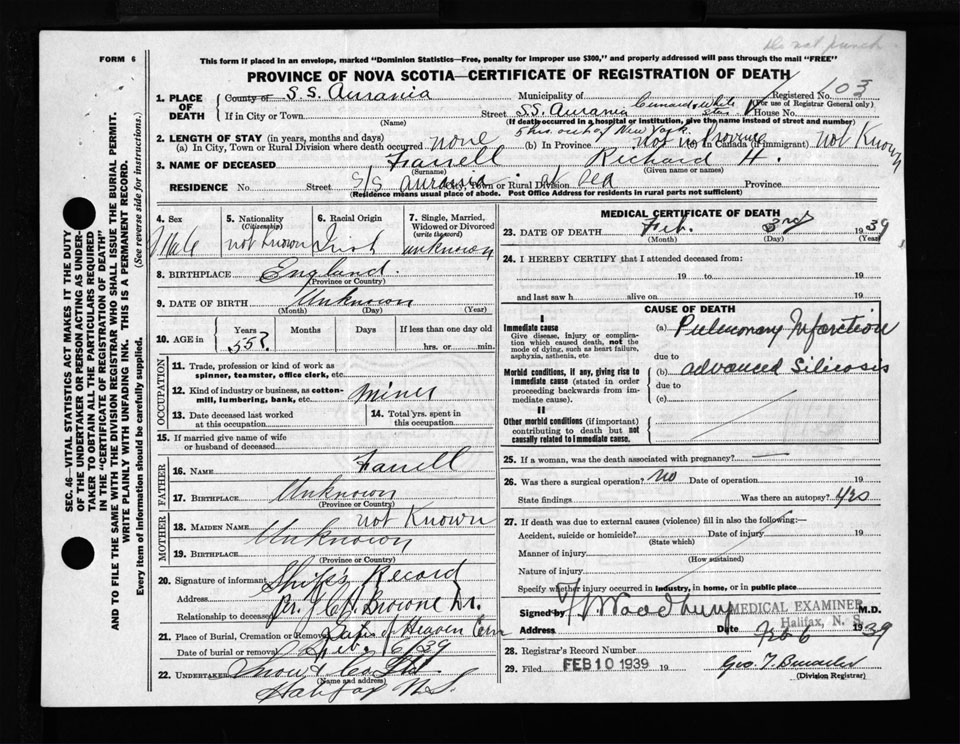 Do not punch.
FORM 6
This form if placed in an envelope, marked "Dominion Statistics—Free, penalty for improper use $300," and properly addressed will pass through the mail "FREE"
PROVINCE OF NOVA SCOTIA—CERTIFICATE OF REGISTRATION OF DEATH
SEC. 46—VITAL STATISTICS ACT MAKES IT THE DUTY
OF THE UNDERTAKER OR PERSON ACTING AS UNDER-
TAKER TO OBTAIN ALL THE PARTICULARS REQUIRED
IN THE "CERTIFICATE OF REGISTRATION OF DEATH"
AND TO FILE THE SAME WITH THE DIVISION REGISTRAR WHO SHALL ISSUE THE BURIAL PERMIT.
WRITE PLAINLY WITH UNFADING INK. THIS IS A PERMANENT RECORD.
Every item of information should be carefully supplied. (See reverse side for instructions.)
1. PLACE OF DEATH
County of S.S. Aurania Municipality of Registered No. 103
(For use of Registrar General only)
If in City or Town Street S.S. Aurania Cunard White Star House No.
(Name) (If death occurred in a hospital or institution, give the name instead of street and number)
5 hrs. out of New York.
2. LENGTH OF STAY (in years, months and days)
(a) In City, Town or Rural Division where death occurred none (b) In Province not no Province In Canada (if immigrant) not Known
3. NAME OF DECEASED Farrell Richard H.
(Surname) (Given name or names)
RESIDENCE No. Street S/S Aurania City, Town or Rural Division at sea Province
(Residence means usual place of abode. Post Office Address for residents in rural parts not sufficient)
4. Sex Male
5. Nationality (Citizenship) not known
6. Racial Origin Irish
7. Single, Married, Widowed or Divorced (write the word) unknown
8. BIRTHPLACE England.
(Province or Country)
9. DATE OF BIRTH Unknown
(Month) (Day) (Year)
10. AGE in Years Months Days If less than one day old
55? hrs. or min.
OCCUPATION
11. Trade, profession or kind of work as spinner, teamster, office clerk, etc.
12. Kind of industry or business, as cotton-mill, lumbering, bank, etc. miner
13. Date deceased last worked at this occupation
14. Total yrs. spent in this occupation
15. If married give name of wife or husband of deceased
FATHER
16. NAME Farrell
17. BIRTHPLACE Unknown
(Province or Country)
MOTHER
18. MAIDEN NAME not Known
19. BIRTHPLACE Unknown
(Province or Country)
20. Signature of informant Ship's Record
Address Per. J.C. Browne Dr.
Relationship to deceased
21. Place of Burial, Cremation or Removal Gate of Heaven Cem
Date of burial or removal Feb. 6/39
22. UNDERTAKER Snow & Co Ltd
(Name and address)
Halifax N.S.
MEDICAL CERTIFICATE OF DEATH
23. DATE OF DEATH Feb. 3rd 1939
(Month) (Day) (Year)
24. I HEREBY CERTIFY that I attended deceased from:
19 to 19
and last saw h alive on 19
CAUSE OF DEATH
I
Immediate cause
Give disease, injury or complication which caused death, not the mode of dying, such as heart failure, asphyxia, asthenia, etc
(a) Pulmonary Infarction
due to
Morbid conditions, if any, giving rise to immediate cause (stated in order proceeding backwards from immediate cause).
(b) advanced Silicosis
due to
(c)
II
Other morbid conditions (if important) contributing to death but not causally related to immediate cause.
25. If a woman, was the death associated with pregnancy? —
26. Was there a surgical operation? no Date of operation 19
State findings Was there an autopsy? yes
27. If death was due to external causes (violence) fill in also the following:—
Accident, suicide or homicide? Date of injury 19
(State which)
Manner of injury
(How sustained)
Nature of injury
Specify whether injury occurred in industry, in home, or in public place
Signed by Woodbury MEDICAL EXAMINER M.D.
Halifax, N. S.
Address Date Feb 6 1939
28. Registrar's Record Number
29. Filed FEB 10 1939 Geo. T.
(Division Registrar)